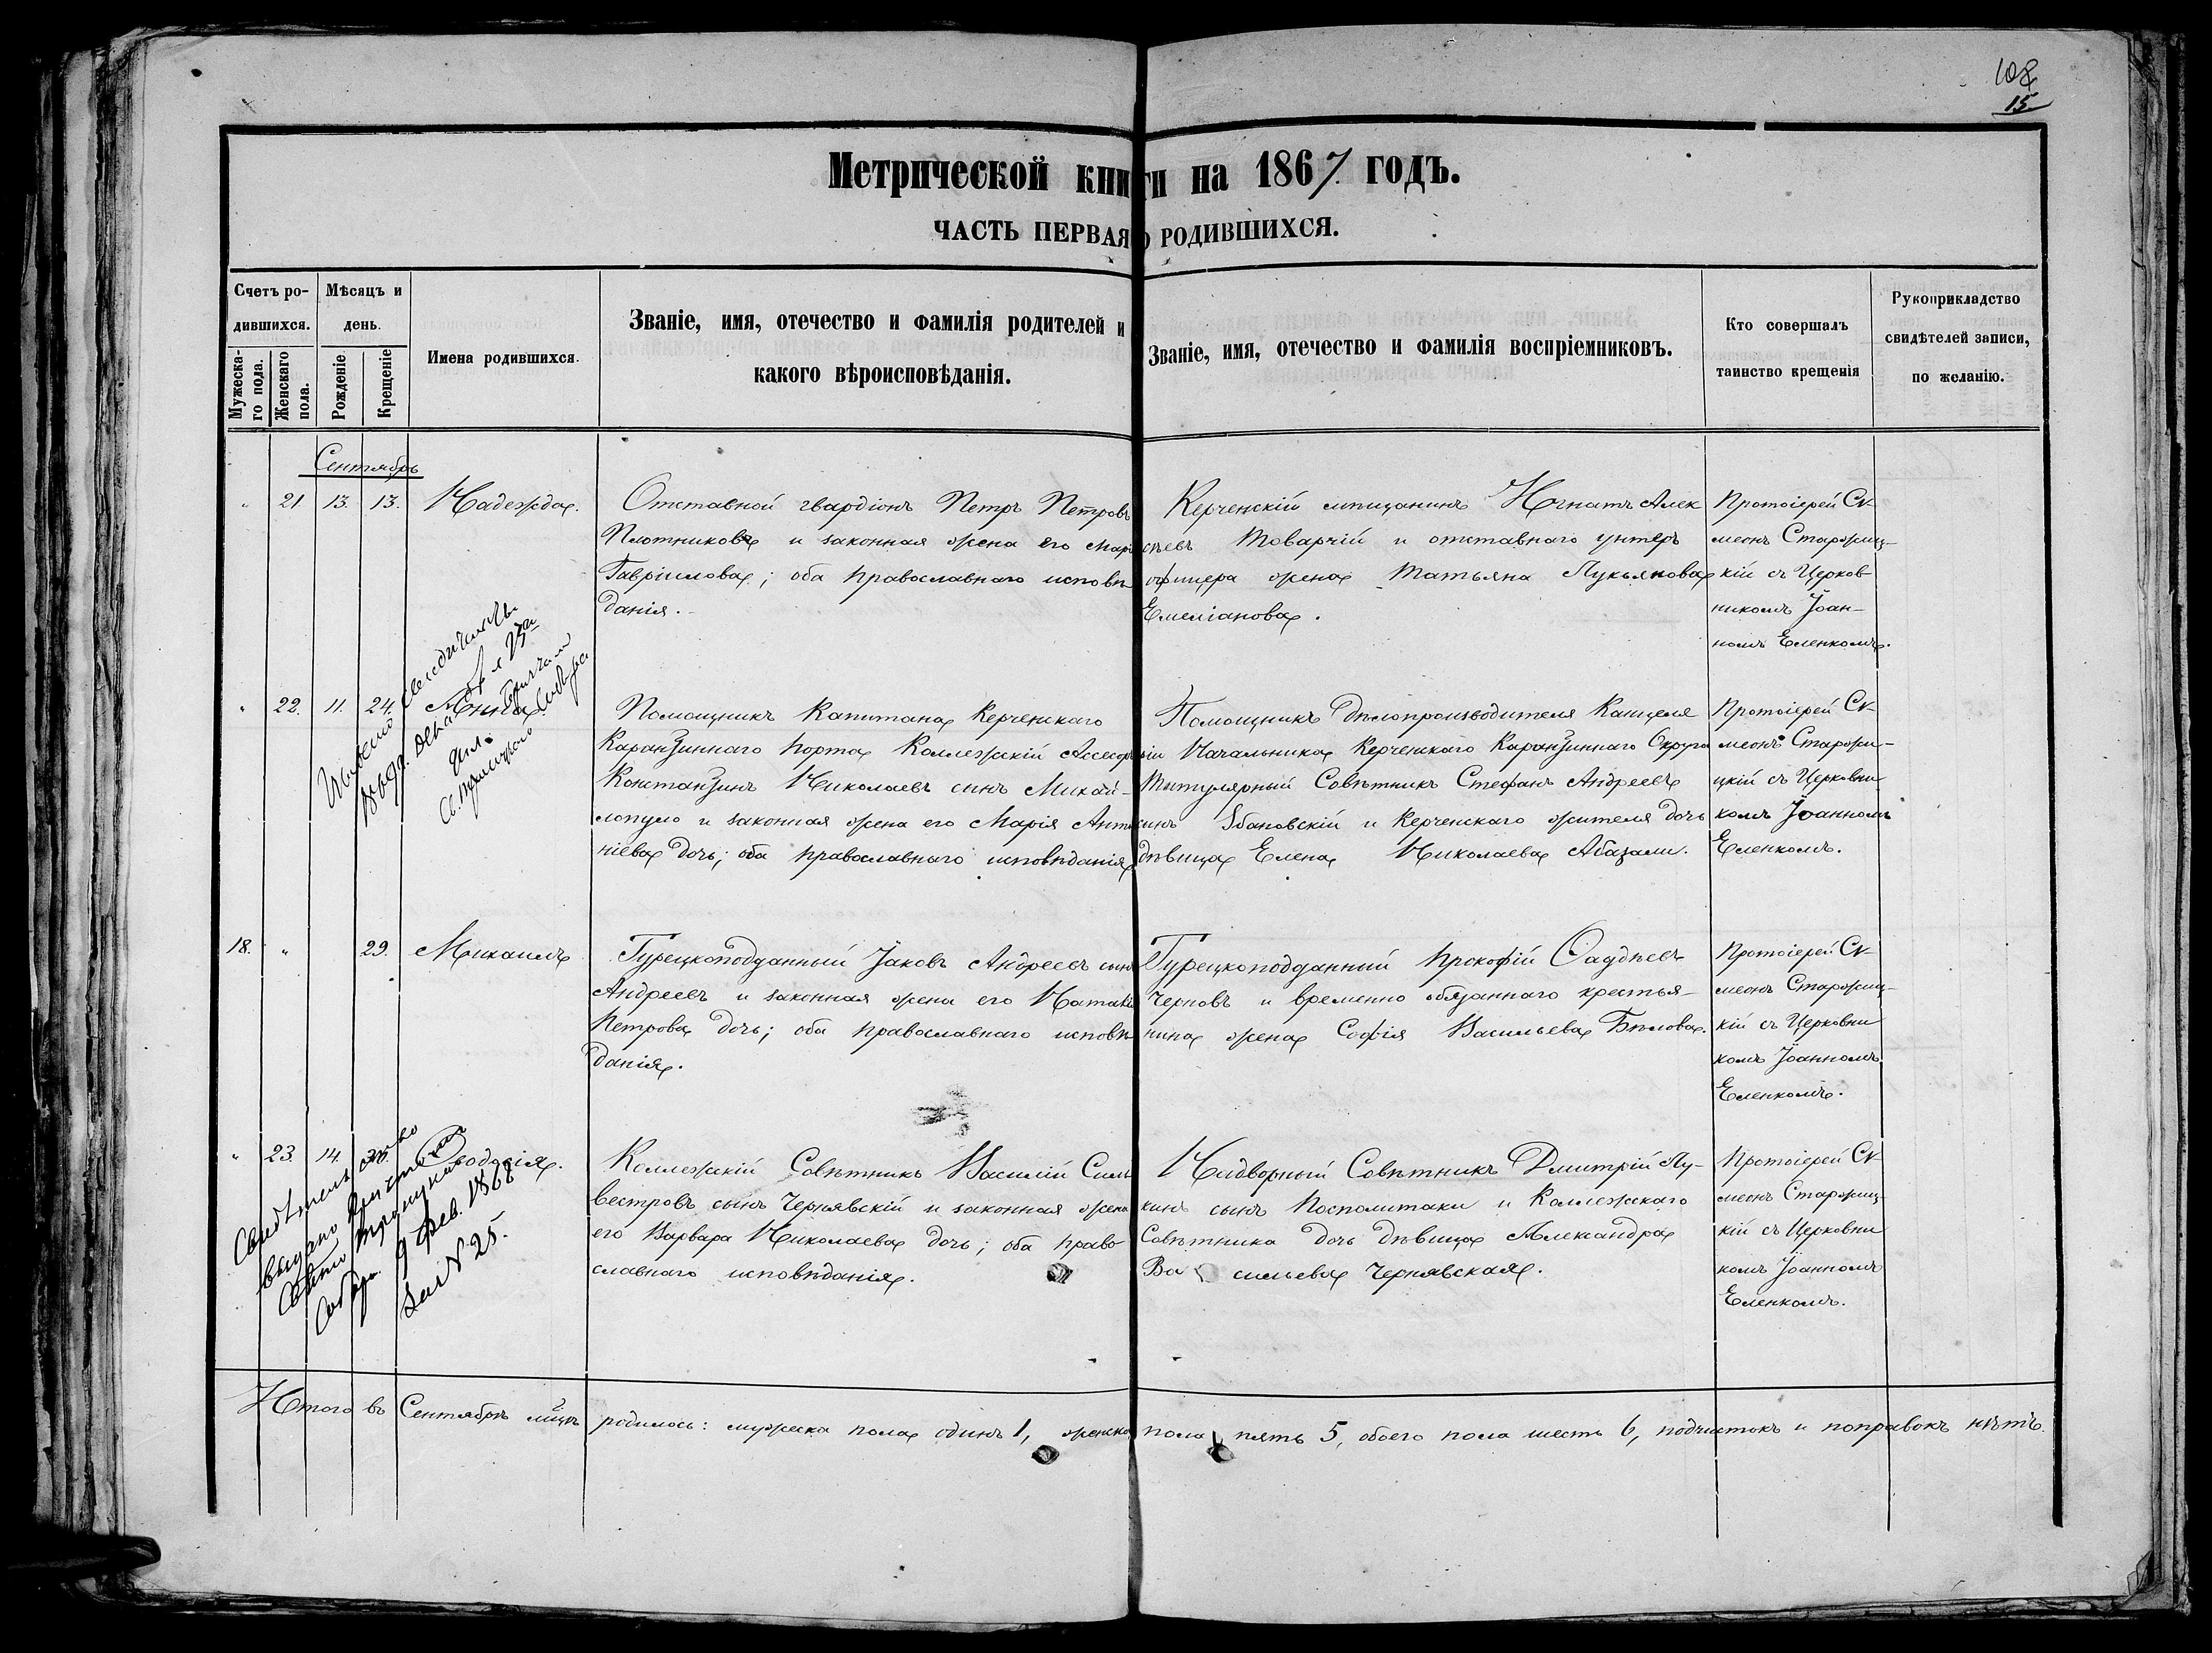 108
15
Метрической книги на 1867 годъ.
ЧАСТЬ ПЕРВАЯ О РОДИВШИХСЯ.
Счетъ ро-
дившихся.
Мужеска-
го пола.
Женскаго
пола.
Мѣсяцъ и
день.
Рожденіе
Крещеніе
Имена родившихся.
Званіе, имя, отечество и фамилія родителей и
какого вѣроисповѣданія.
Званіе, имя, отечество и фамилія воспріемниковъ.
Кто совершалъ
таинство крещенія
Рукоприкладство
свидѣтелей записи,
по желанію.
Сентябрь
" 21 13. 13. Надежда.
Отставной гвардіонъ Петръ Петровъ
Плотниковъ и законная жена его Марія
Гавріилова; оба православнаго исповѣ-
данія.
Керченскій мѣщанинъ Игнатъ Алек
сѣевъ Товарчій и отставнаго унтеръ
офицера жена Татьяна Лукьянова
Емеліанова.
Протоіерей Си-
меонъ Старожиц-
кій съ Церков
никомъ Іоан-
номъ Еленкомъ.
" 22. 11. 24. Анна
Помощникъ Капитана Керченскаго
Карантиннаго Порта Коллежскій Ассесоръ
Константинъ Николаевъ сынъ Михай-
лопуло и законная жена его Марія Анто
ніева дочь; оба православнаго исповѣданія
Помощникъ дѣлопроизводителя Канцеля
ріи Начальника Керченскаго Карантиннаго Округа
Титулярный Совѣтникъ Стефанъ Андреевъ
сынъ Збановскій и Керченскаго жителя дочь
дѣвица Елена Николаева Абазали.
Протоіерей Си-
меонъ Старожи-
цкій съ Церковни
комъ Іоанномъ
Еленкомъ.
18. " 29. Михаилъ
Турецкоподданный Іаковъ Андреевъ сынъ
Андреевъ и законная жена его Наталія
Петрова дочь; оба православнаго исповѣ
данія.
Турецкоподданный Прокофій Фаддѣевъ
Черновъ и временно обязаннаго крестья-
нина жена Софія Васильева Бѣлова.
Протоіерей Си-
меонъ Старожиц-
кій съ Церковни
комъ Іоанномъ
Еленкомъ.
" 23. 14. 30. Ѳеодосія.
Свидѣтельство
выдано
9 Фев. 1868
За № 25.
Коллежскій Совѣтникъ Василій Силь
вестровъ сынъ Чернявскій и законная жена
его Варвара Николаева дочь; оба право
славнаго исповѣданія.
Надворный Совѣтникъ Дмитрій Лу-
кинъ сынъ Посполитаки и Коллежскаго
Совѣтника дочь дѣвица Александра
Васильева Чернявская.
Протоіерей Си-
меонъ Старожиц-
кій съ Церковни
комъ Іоанномъ
Еленкомъ.
Итого въ Сентябрѣ мцѣ родилось: мужеска пола одинъ 1, женска пола пять 5, обоего пола шесть 6, подчистокъ и поправокъ нѣтъ.